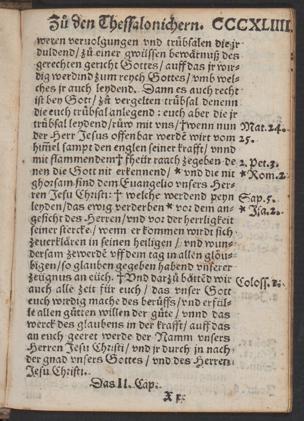 Zů den Thessalonichern. CCCXLIIII.
weren veruolgungen vnd trübsalen die jr
duldend/ zů einer gwüssen bewärnuß des
gerechten gericht Gottes/ auff das jr wir-
dig werdind zum reych Gottes/ vmb wel-
ches jr auch leydend. Dann es auch recht
ist bey Gott/ zů vergelten trübsal denenn
die euch trübsal anlegend: euch aber die jr
trübsal leydend/ rüw mit vns/ †wenn nun Mat.24.
der Herr Jesus offenbar werdẽ wirt vom 25.
himel sampt den englen seiner krafft/ vnnd
mit flammendem† fheür raach zegeben de- 2. Pet.3.
nen die Gott nit erkennend/ * vnd die nit *Rom.2.
ghorsam sind dem Euangelio vnsers Her-
ren Jesu Christi: † welche werdend peyn Sap.5.
leyden/ das ewig verderben * vor dem an- * Isa.2.
gesicht des Herren/ vnd vor der herrligkeit
seiner stercke/ wenn er kommen wirdt sich
zeuerklären in seinen heiligen/ vnd wun-
dersam zewerdẽ vff dem tag in allen glöu-
bigen/ so glauben gegeben habend vnserer
zeügnus an euch. †Vnd darzů bättẽd wir Coloss.1.
auch alle zeit für euch/ das vnser Gott
euch wirdig mache des berüffs/ vnd erfül-
le allen gütten willen der güte/ vnnd das
werck des glaubens in der krafft/ auff das
an euch geert werde der Namm vnsers
Herren Jesu Christi/ vnd jr durch in nach
der gnad vnsers Gottes/ vnd des Herren
Jesu Christi.
Das II. Cap.